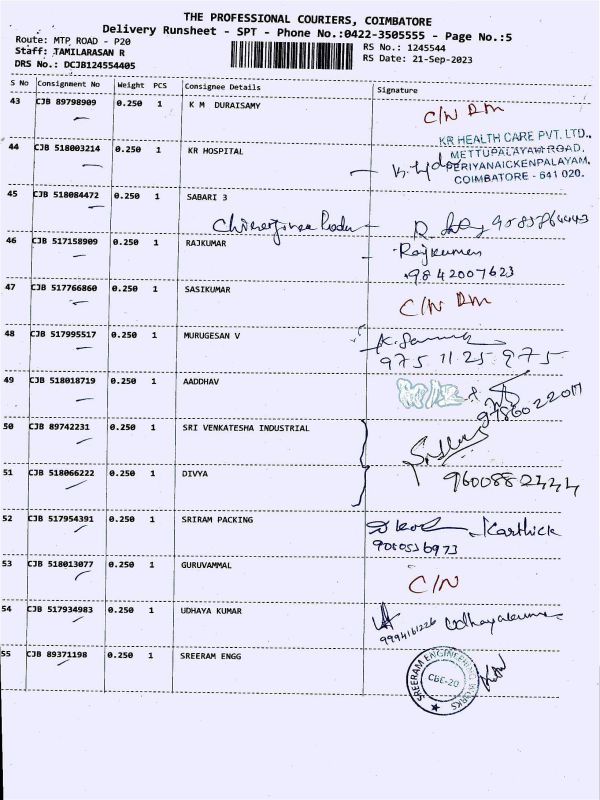 THE PROFESSIONAL COURIERS, COIMBATORE
Delivery Runsheet - SPT - Phone No.:0422-3505555 - Page No.:5
Route: MTP ROAD - P20
Staff: TAMILARASAN R
DRS No.: DCJB124554405
RS No.: 1245544
RS Date: 21-Sep-2023
S No Consignment No Weight PCS Consignee Details Signature
43 CJB 89798909 0.250 1 K M DURAISAMY C/N RM
44 CJB 518003214 0.250 1 KR HOSPITAL
KR HEALTH CARE PVT. LTD.,
METTUPALAYAM ROAD,
PERIYANAICKENPALAYAM,
COIMBATORE - 641 020.
45 CJB 518084472 0.250 1 SABARI 3
46 CJB 517158909 0.250 1 RAJKUMAR Rajkumar
9842007623
47 CJB 517766860 0.250 1 SASIKUMAR C/N RM
48 CJB 517995517 0.250 1 MURUGESAN V
975 11 25 975
49 CJB 518018719 0.250 1 AADDHAV
9786022017
50 CJB 89742231 0.250 1 SRI VENKATESHA INDUSTRIAL
51 CJB 518066222 0.250 1 DIVYA 9600882444
52 CJB 517954391 0.250 1 SRIRAM PACKING Karthick
53 CJB 518013077 0.250 1 GURUVAMMAL C/N
54 CJB 517934983 0.250 1 UDHAYA KUMAR Udhayakumar
9994161226
55 CJB 89371198 0.250 1 SREERAM ENGG
SREERAM ENGINEERING WORKS
CBE-20